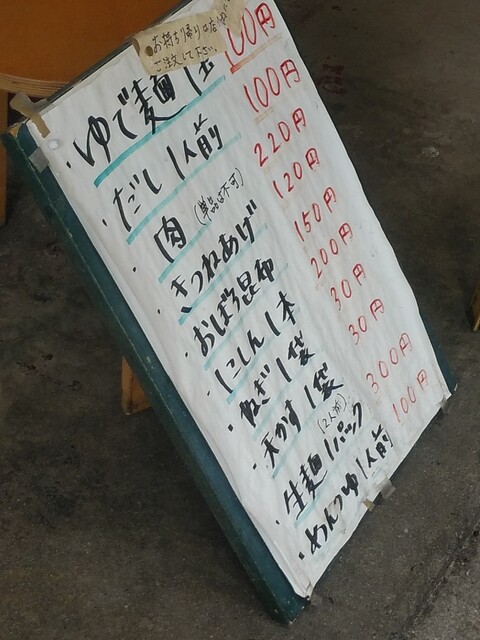 お持ち帰りは店内で
ご注文して下さい。
・ゆで麺1玉 100円
・だし1人前 100円
・肉(単品は不可) 220円
・きつねあげ 120円
・おぼろ昆布 150円
・にしん1本 200円
・ねぎ1袋 30円
・天かす1袋 30円
・生麺1パック(2人前) 300円
・めんつゆ1人前 100円